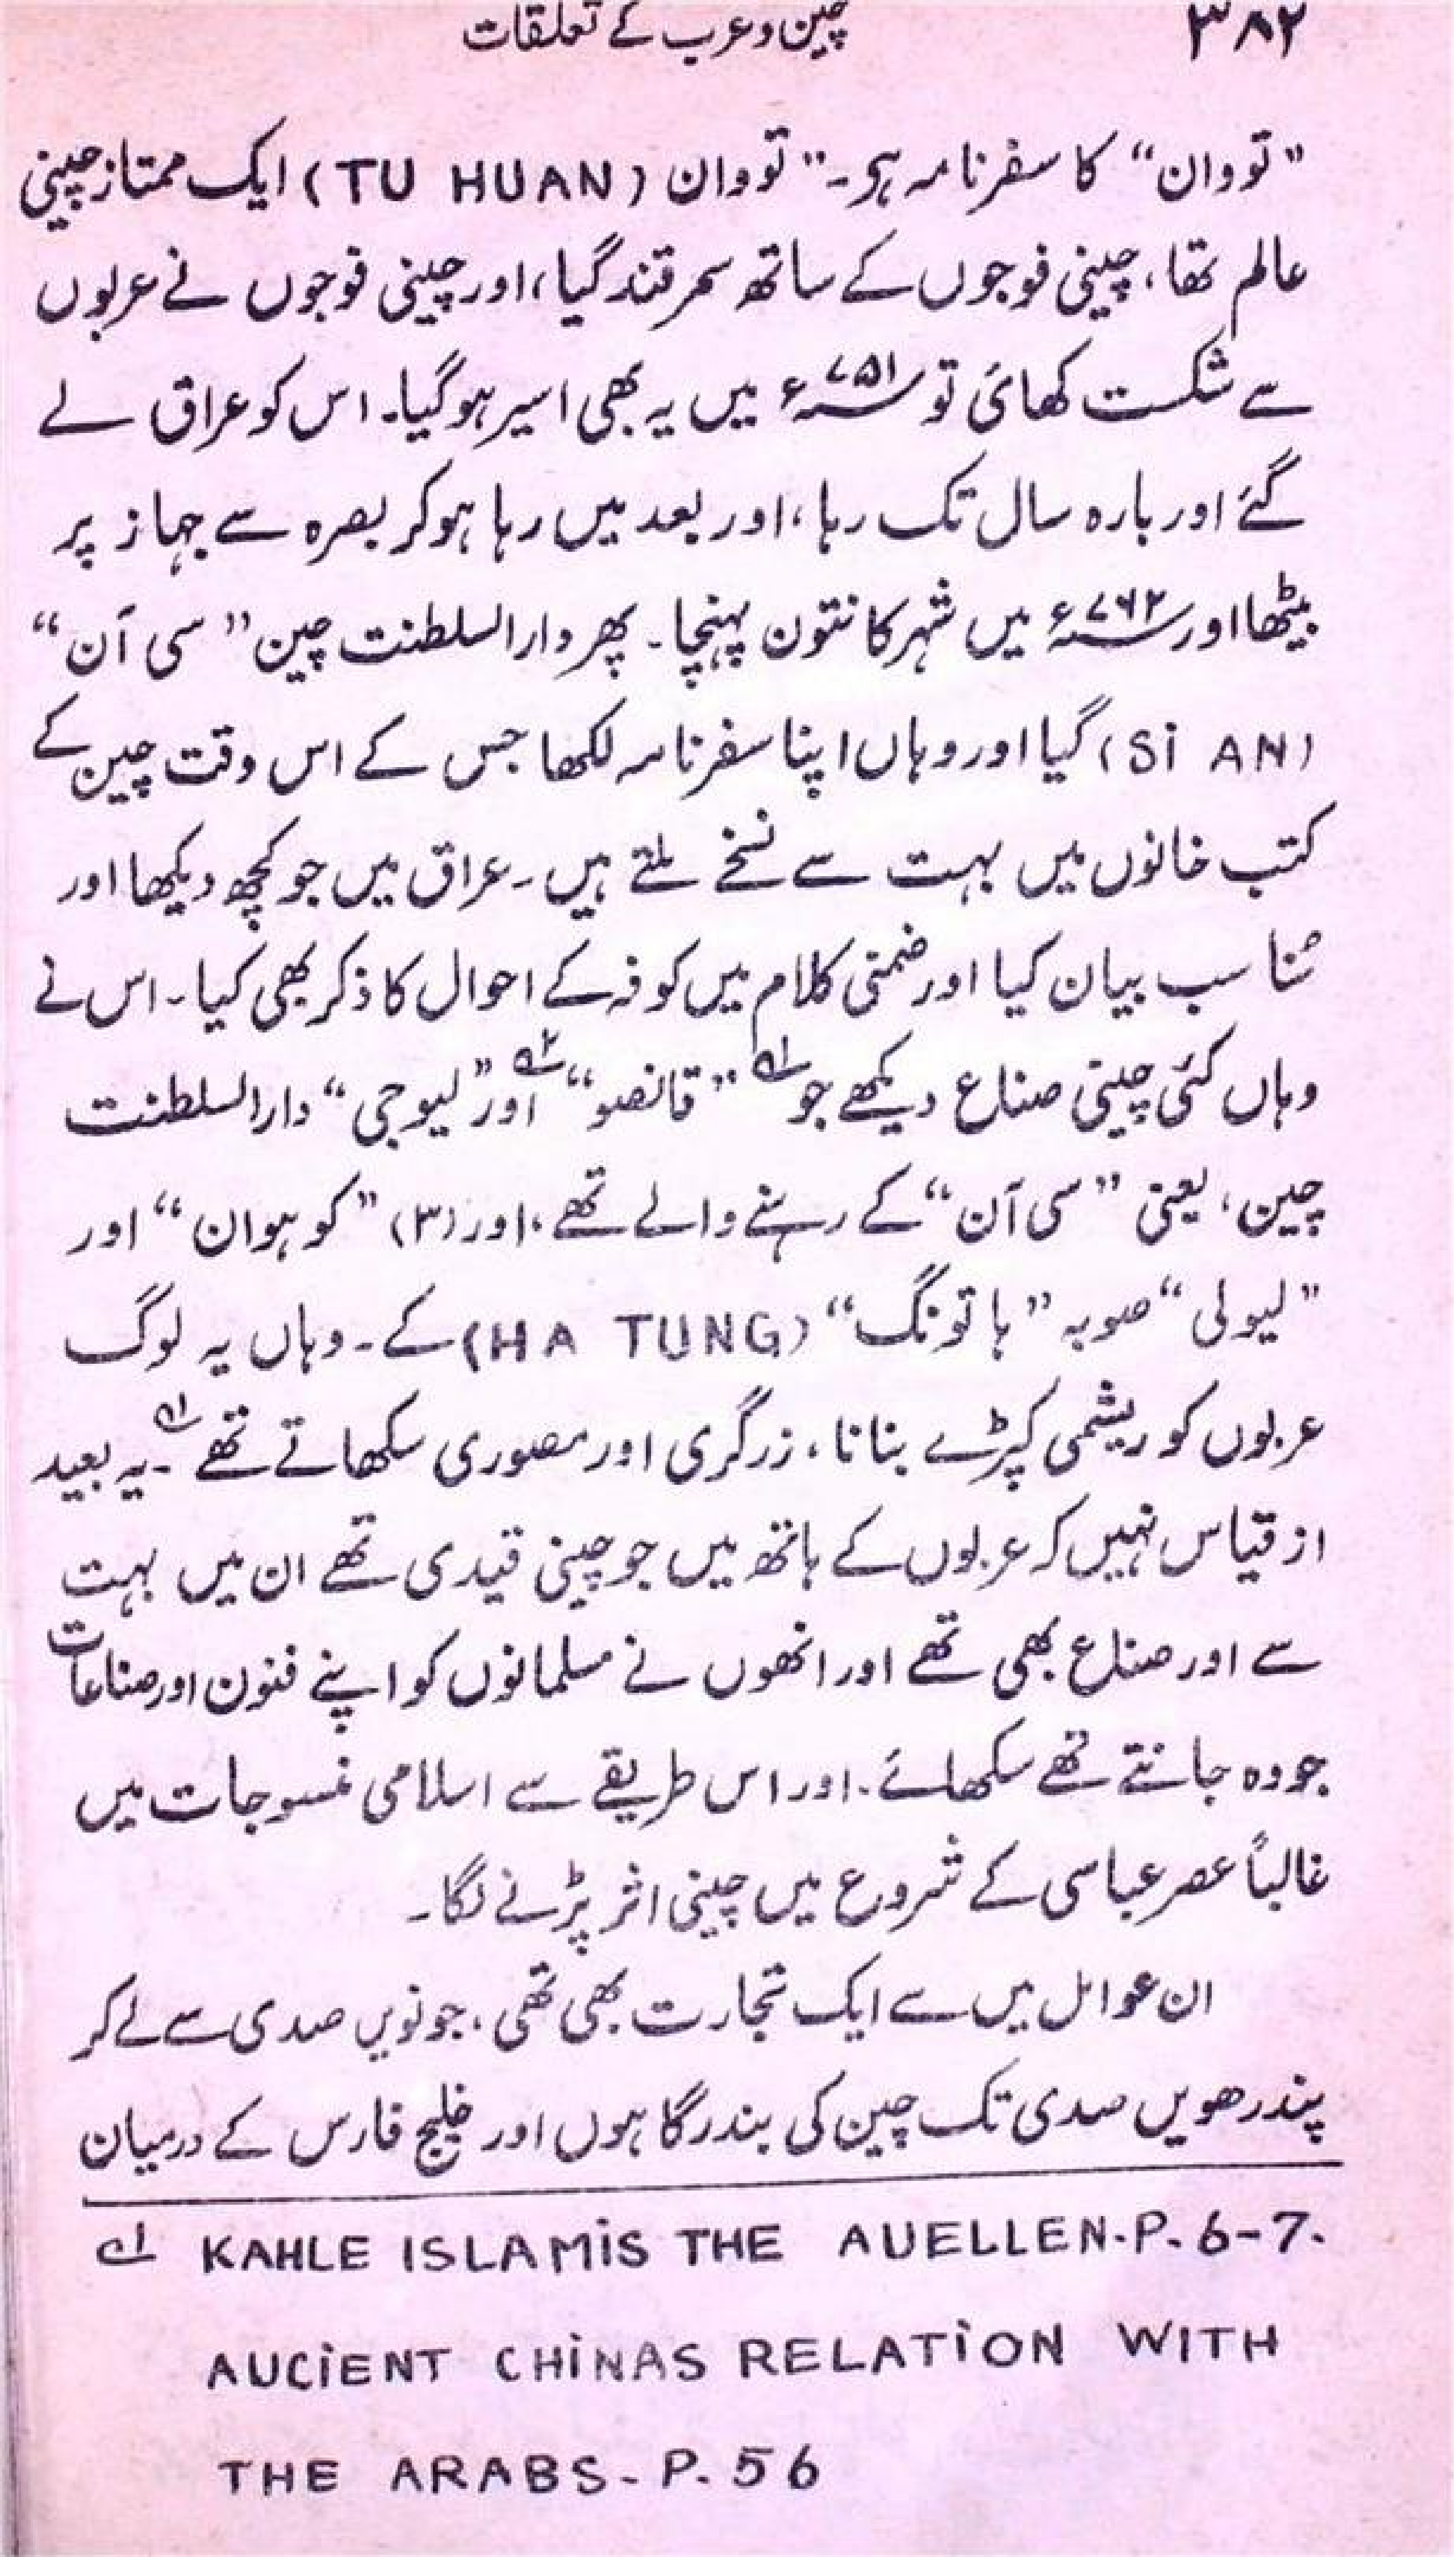 ۳۸۲ چین و عرب کے تعلقات
”تووان“ کا سفرنامہ ہو۔ ”تووان (TU HUAN) ایک ممتاز چینی
عالم تھا، چینی فوجوں کے ساتھ سمرقند گیا، اور چینی فوجوں نے عربوں
سے شکست کھائی تو ۷۵۱ء میں یہ بھی اسیر ہوگیا۔ اس کو عراق لے
گئے اور بارہ سال تک رہا، اور بعد میں رہا ہوکر بصرہ سے جہاز پر
بیٹھا اور ۷۶۲ء میں شہر کانتون پہنچا۔ پھر دارالسلطنت چین ”سی آن“
(Si AN) گیا اور وہاں اپنا سفرنامہ لکھا جس کے اس وقت چین کے
کتب خانوں میں بہت سے نسخے ملتے ہیں۔ عراق میں جو کچھ دیکھا اور
سُنا سب بیان کیا اور ضمنی کلام میں کوفہ کے احوال کا ذکر بھی کیا۔ اس نے
وہاں کئی چینی صناع دیکھے جو ۱؎ ”قانصو“ ۲؎ اور ”لیوجی“ دارالسلطنت
چین، یعنی ”سی آن“ کے رہنے والے تھے، اور (۳) ”کوہوان“ اور
”لیولی“ صوبہ ”ہاتونگ“ (HA TUNG) کے۔ وہاں یہ لوگ
عربوں کو ریشمی کپڑے بنانا، زرگری اور مصوری سکھاتے تھے ۱؎۔ یہ بعید
از قیاس نہیں کہ عربوں کے ہاتھ میں جو چینی قیدی تھے ان میں بہت
سے اور صناع بھی تھے اور انھوں نے مسلمانوں کو اپنے فنون اور صناعات
جو وہ جانتے تھے سکھائے۔ اور اس طریقے سے اسلامی منسوجات میں
غالباً عصر عباسی کے شروع میں چینی اثر پڑنے لگا۔
ان عوامل میں سے ایک تجارت بھی تھی، جو نویں صدی سے لے کر
پندرھویں صدی تک چین کی بندرگاہوں اور خلیج فارس کے درمیان
۱؎ KAHLE ISLAMiS THE AUELLEN.P.6-7.
AUCiENT CHiNAS RELATiON WITH
THE ARABS-P.56